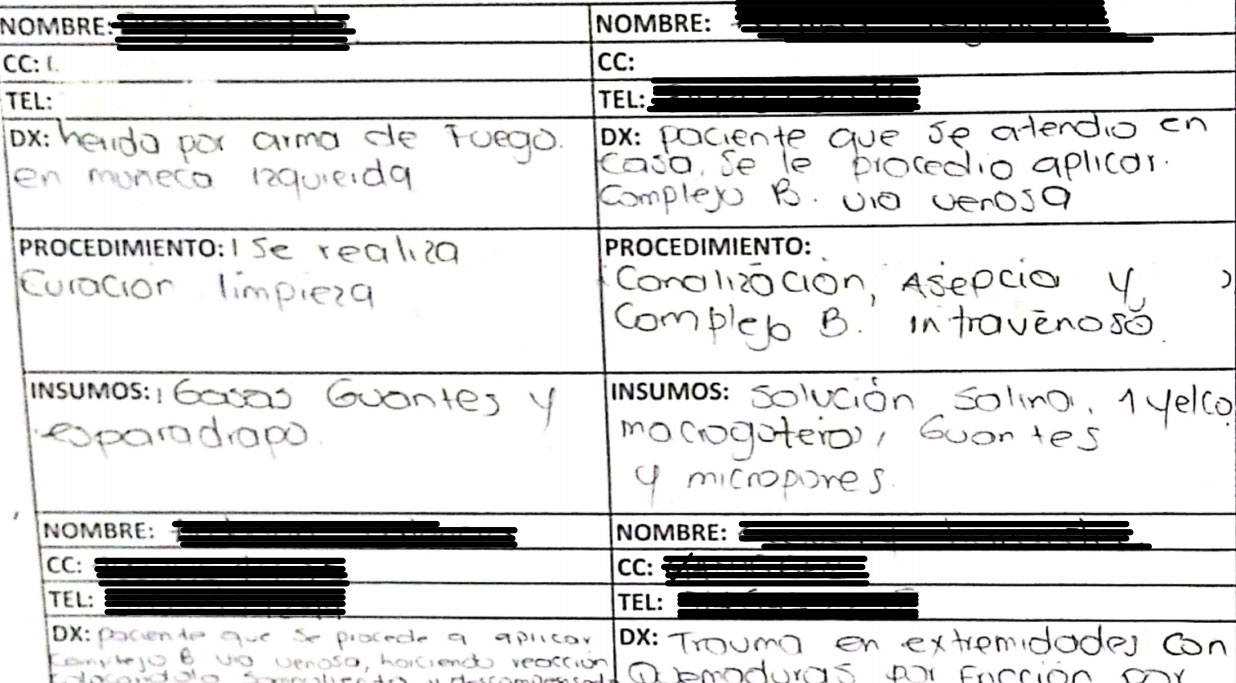 NOMBRE:
CC:
TEL:
DX: herida por arma de Fuego.
en muñeca izquierda
PROCEDIMIENTO: Se realiza
Curacion limpieza
INSUMOS: Gasas Guantes y
esparadrapo.
NOMBRE:
CC:
TEL:
DX: paciente que se atendio en
casa. se le procedio aplicar.
Complejo B. via venosa
PROCEDIMIENTO:
Canalización, Asepcia y
Complejo B. intravenoso.
INSUMOS: Solución Salina, 1 yelco
macrogotero, Guantes
y micropores.
NOMBRE:
CC:
TEL:
DX: paciente que se procede a aplicar
Complejo B via venosa, haciendo reacción
NOMBRE:
CC:
TEL:
DX: Trauma en extremidades con
Quemaduras por Fricción por